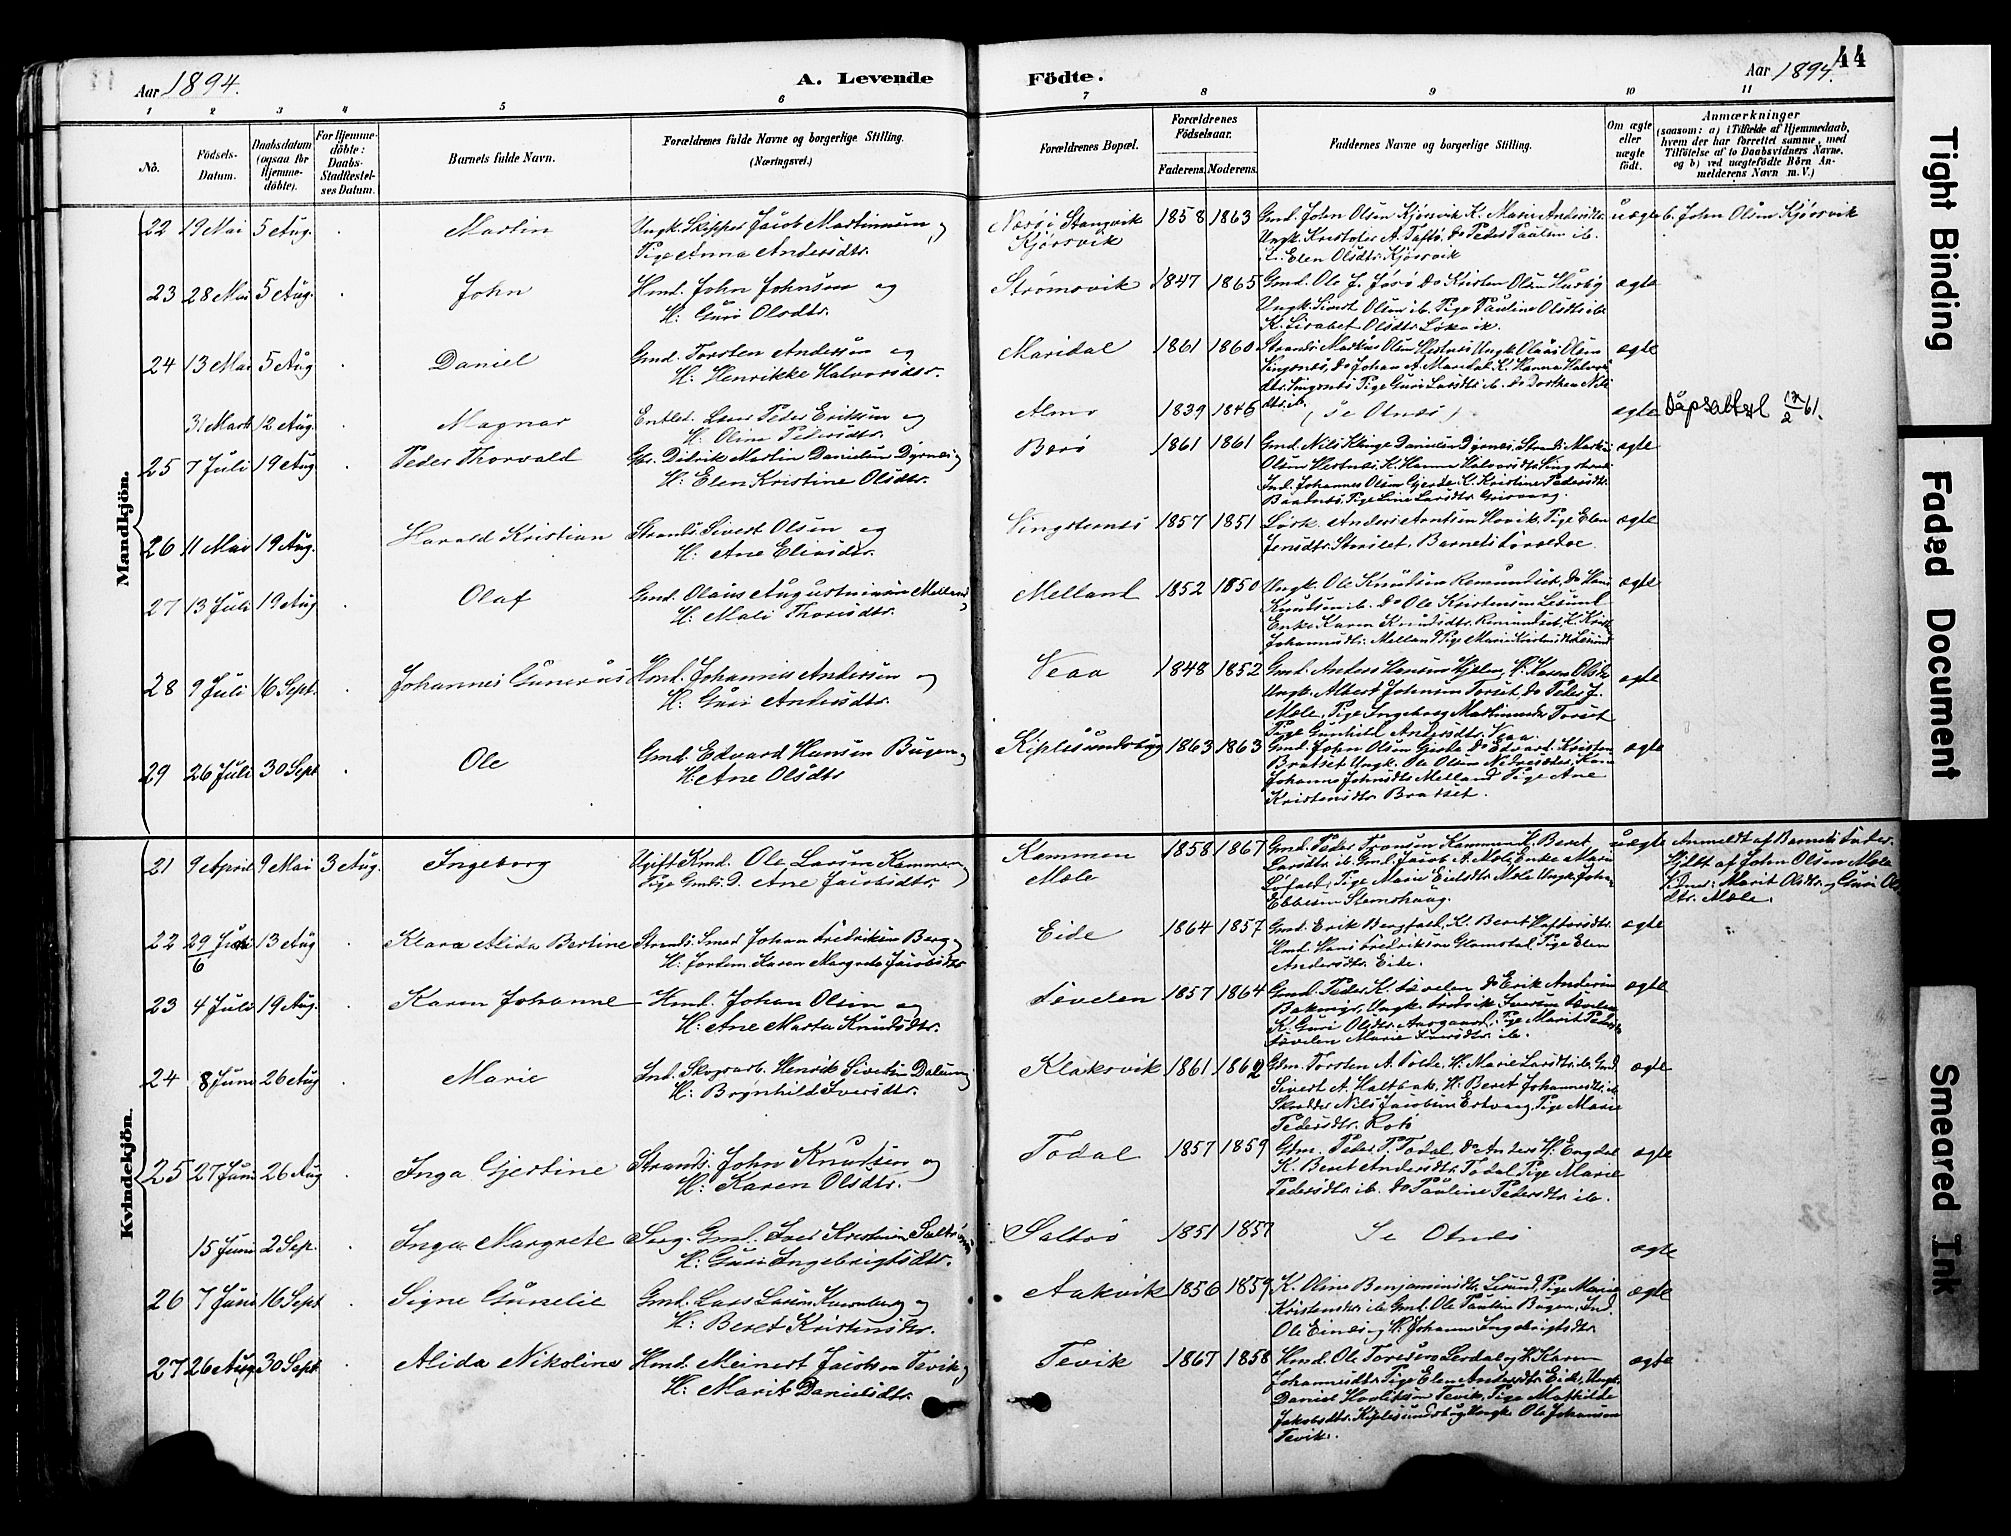 Aar 1894. A. Levende Födte. Aar 1894. 44
1 2 3 4 5 6 7 8 9 10 11
No. Födsels-Datum. Daabsdatum (ogsaa for Hjemme-döbte). For Hjemme-döbte: Daabs-Stadfæstel-ses Datum. Barnets fulde Navn. Forældrenes fulde Navne og borgerlige Stilling. (Næringsvei.) Forældrenes Bopæl. Forældrenes Födselsaar. Faderens. Moderens. Faddernes Navne og borgerlige Stilling. Om ægte eller uægte födt. Anmærkninger (saasom: a) i Tilfælde af Hjemmedaab, hvem der har forrettet samme, med Tilföielse af to Daabsvidners Navne. og b) ved uægtefödte Börn An-melderens Navn m. V.)
Mandkjön.
22 19 Mai 5 Aug. Martin Ungk. Skipper Jacob Martinusen og
Pige Anna Andersdtr. Stangvik Kjørsvik 1858 1863 Gmd. John Olsen Kjørsvik K. Marie Andersdtr.
Ungk. Kristofer A. Taftø, Do Peder Paulsen ib.
K. Elen Olsdtr. Kjørsvik uægte b. John Olsen Kjørsvik
23 28 Mai 5 Aug. John Hmd. John Johnsen og
H: Guri Olsdtr. Strømsvik 1847 1865 Gmd. Ole J. Jørø Do Kristen Olsen Husby
Ungk. Sivert Olsen ib. Pige Pauline Olsdtr ib.
K. Lisabet Olsdtr. Løkvik. ægte
24 13 Mai 5 Aug Daniel Gmd. Torsten Andersen og
H: Henrikke Halvorsdtr. Maridal 1861 1860 Strands. Markus Olsen Hestnes Ungk. Olaus Olsen
Do Johan A. Maridal K. Hanna Halvors-
dtr. Pige Guri Larsdtr ib. Do Dorthea Nils-
dtr. ib. ægte
31 Mart 12 Aug. Magnar Enkem. Lars Peder Eriksen og
H. Oline Pedersdtr. Almo 1839 1846 (Se Otnes) ægte Dåpsattest 17/2 61.
25 7 Juli 19 Aug. Peder Thorvald Gbr. Didrik Martin Danielsen Dyrnes og
H: Elen Kristine Olsdtr. Barø 1861 1861 Gmd. Nils Klinge Danielsen Dyrnes, Strands. Markus
Olsen Hestnes, K. Hanna Halvorsdtr.
Ind. Johannes Olsen Gjerde, K. Kristine Pedersdtr.
Baatnes, Pige Line Larsdtr. ægte
26 11 Mai 19 Aug. Harald Kristian Strands. Sivert Olsen og
H: Ane Eliasdtr. Vingsternes 1857 1851 Anders Arntsen Hovik, Pige Elen
Jensdtr. Barnets Forældre. ægte
27 13 Juli 19 Aug Olaf Gmd. Olaus Augustinusen Melland,
H: Mali Thoresdtr. Melland 1852 1850 Ungk. Ole Knudsen Remundset, Do Hans
Knudsen ib. Do Ole Kristensen Lesund
Enke Karen Knudsdtr. Remundset, K.
Johannesdtr. Melland Pige Marie Kristensdtr Lesund ægte
28 9 Juli 16 Sept. Johannes Gunerius Hmd. Johannes Andersen og
H: Guri Andersdtr. Veaa 1848 1852 Gmd. Anders Hansen Hjelen, H. Karen Olsdtr.
Ungk. Albert Johnsen Torset, Do Peder J.
Mæle, Pige Ingeborg Martinusdtr. Torset
Pige Gunhild Andersdtr. Veaa. ægte
29 26 Juli 30 Sept Ole Gmd. Edvard Hansen Bugen og
H: Ane Olsdtr Kiplesundsbug 1863 1863 Gmd. John Olsen Do Edvard Kristens.
Bratset Ungk. Ole Olsen
Johanne Johnsdtr. Melland Pige Ane
Kristensdtr. Bratset. ægte
Kvindekjön.
21 9 April 9 Mai 3 Aug. Ingeborg Ugift Kmd. Ole Larsen Kammen og
Pige Gmds. D. Ane Jacobsdtr. Kammen
Mæle 1858 1867 Gmd. Peder Kammen K. Beret
Larsdtr. ib. Gmd. Jacob A. Mæle, Enke Mari
Pige Marie Mæle Ungk. Johan
Ebbesen Stemshaug. uægte Anmeldt af Barnets Fader
Hjdbt af John Olsen Mæle
Vidner: Marit Olsdtr. og Guri Ols-
dtr. Mæle.
22 29 Juni/6 13 Aug Klara Alida Bertine Strands. Smed Johan Fredriksen Berg og
H: Jordem. Karen Margrete Jacobsdtr Eide 1864 1857 Gmd. Erik Bergfald, K. Beret Haftorsdtr.
Hmd. Hans Fredriksen Glomstal, Pige Elen
Andersdtr. Eide. ægte
23 4 Juli 19 Aug. Karen Johanne Hmd. Johan Olsen og
H: Ane Marta Knudsdtr. Tøvelen 1857 1864 Gmd. Peder K. Tøvelen Do Erik Andersen
Bakmyr, Ungk. Fredrik Iversen Tøvelen
K. Guri Olsdtr. Aargaard, Pige Marit Peders.
Tøvelen Marie Iversdtr. ib. ægte
24 8 Juni 26 Aug Marie Ind. Skogsarb. Henrik Sivertsen Dalum og
H: Brynhild Iversdtr. Klaksvik 1861 1862 Gdm. Torsten A. Tolde, H: Marie Larsdtr. ib. Gmd.
Sivert A. Haltbak, H: Beret Johannesdtr. ib.
Skredder Nils Jacobsen Ertvaag, Pige Marie
Pedersdtr. Rotø ægte
25 27 Juni 26 Aug Inga Gjertine Strands. John Knudsen og
H: Karen Olsdtr. Todal 1857 1859 Gdm. Peder P. Todal, Do Anders H. Engdal
K. Beret Andersdtr. Todal Pige Marie
Pedersdtr ib. Do Pauline Pedersdtr ib. ægte
15 Juni 2 Sep. Inga Margrete Sag. Gmd. Iver Kristensen Saltrø og
H: Guri Ingebrigtsdtr. Saltrø 1851 1857 Se Otnes ægte
26 7 Juni 16 Sept Signe Gunelie Gmd. Lars Larsen Kornberg og
H: Beret Kristensdtr. Aakvik 1856 1859 K. Oline Benjaminsdtr. Lesund, Pige Marie
Kristensdtr ib. Gmd. Ole Paulsen Bugen, Ind.
Ole Einesø H: Johanne Ingebrigtsdtr. ægte
27 26 Aug. 30 Sept Alida Nikoline Hmd. Meinert Jacobsen Tevik,
H: Marit Danielsdtr. Tevik 1867 1858 Hmd. Ole Toresen Lerdal og H. Karen
Johannesdtr. Pige Elen Andersdtr. Eide, Ungk.
Daniel Tevik, Pige Mathilde
Jakobsdtr. Kiplesundsbug Ungk. Ole Johansen
Tevik. ægte
Tight Binding
Faded Document
Smeared Ink